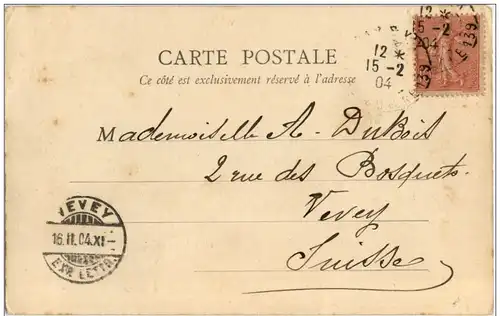 12
15-2
04
12
15-2
04
139
139
CARTE POSTALE
Ce côté est exclusivement réservé à l'adresse
Mademoiselle A. DuBois
2 rue des Bosquets
Vevey
Suisse
VEVEY
16.II.04.XI-
EXP. LETTR.